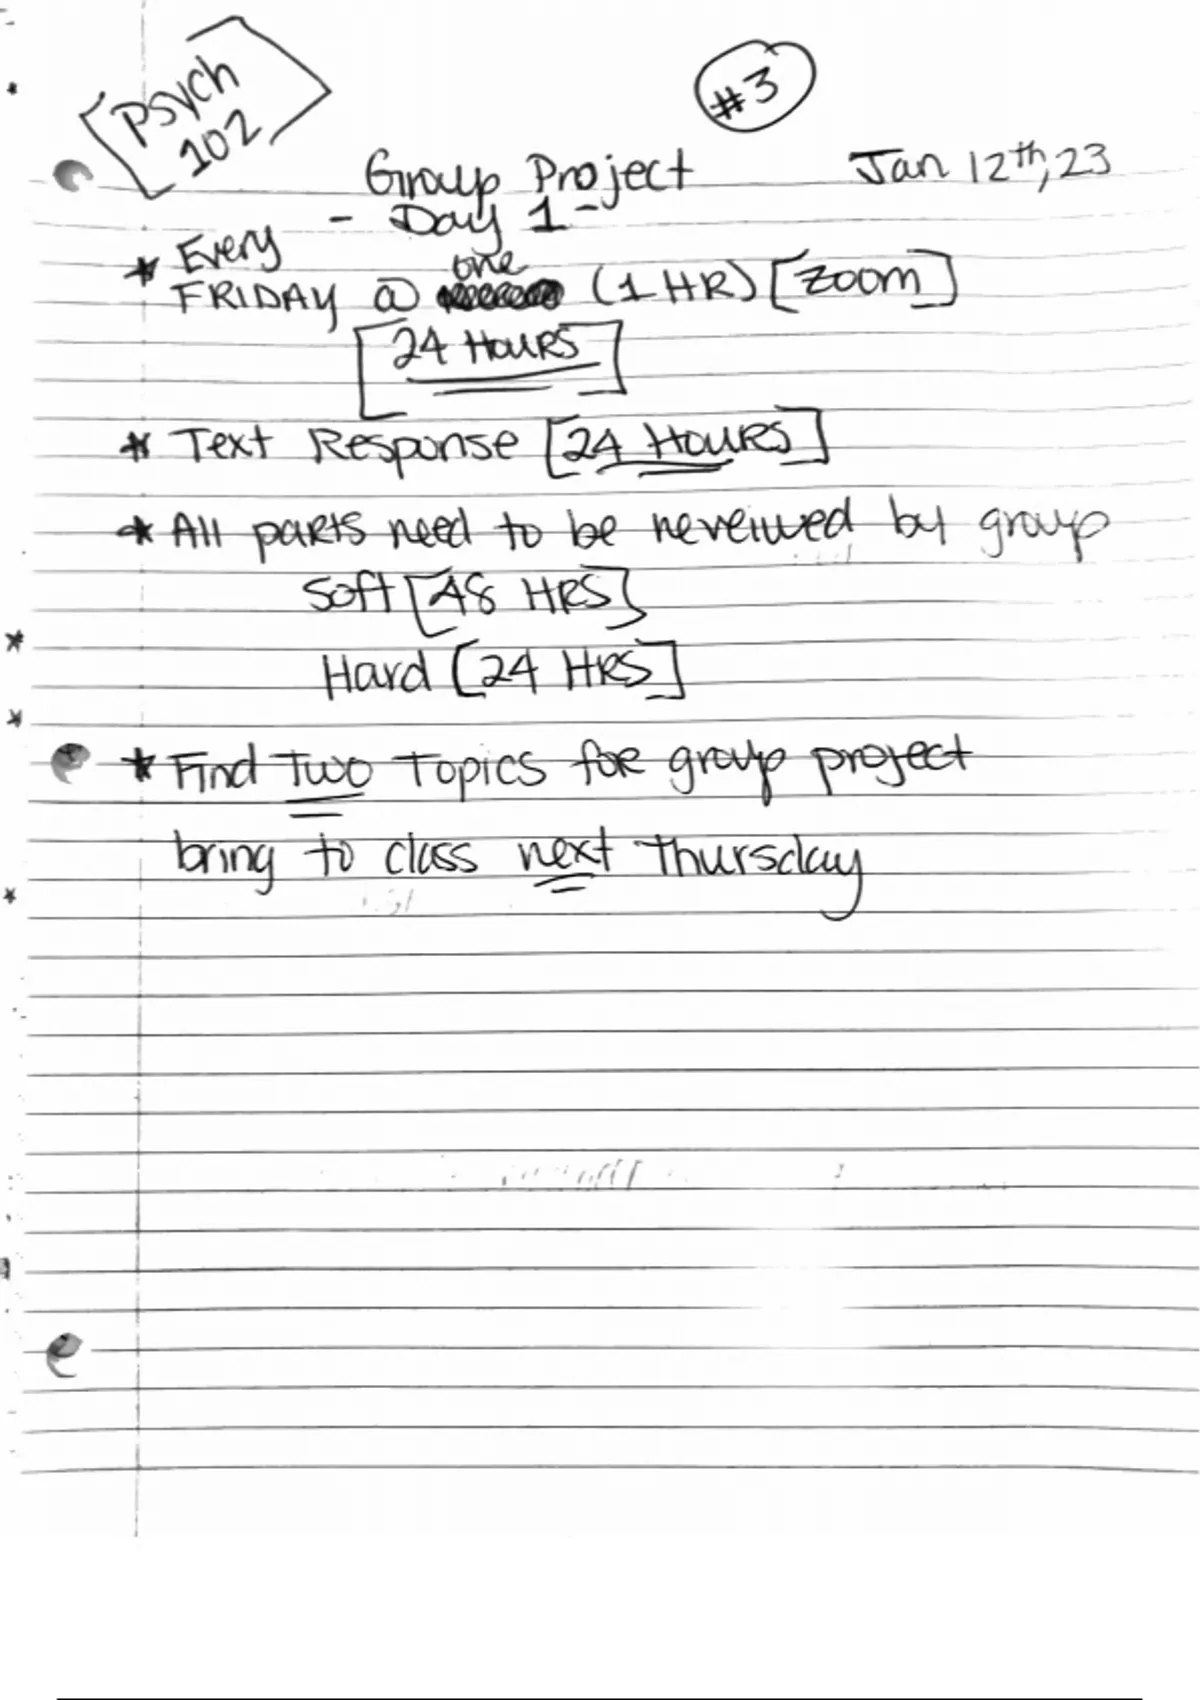 Psych
102
#3
Group Project
Jan 12th, 23
- Day 1 -
* Every
one
FRIDAY @ (1 HR) [Zoom]
[24 HOURS]
* Text Response [24 HOURS]
* All parts need to be reveiwed by group
Soft [48 HRS]
Hard [24 HRS]
* Find Two Topics for group project
bring to class next Thursday